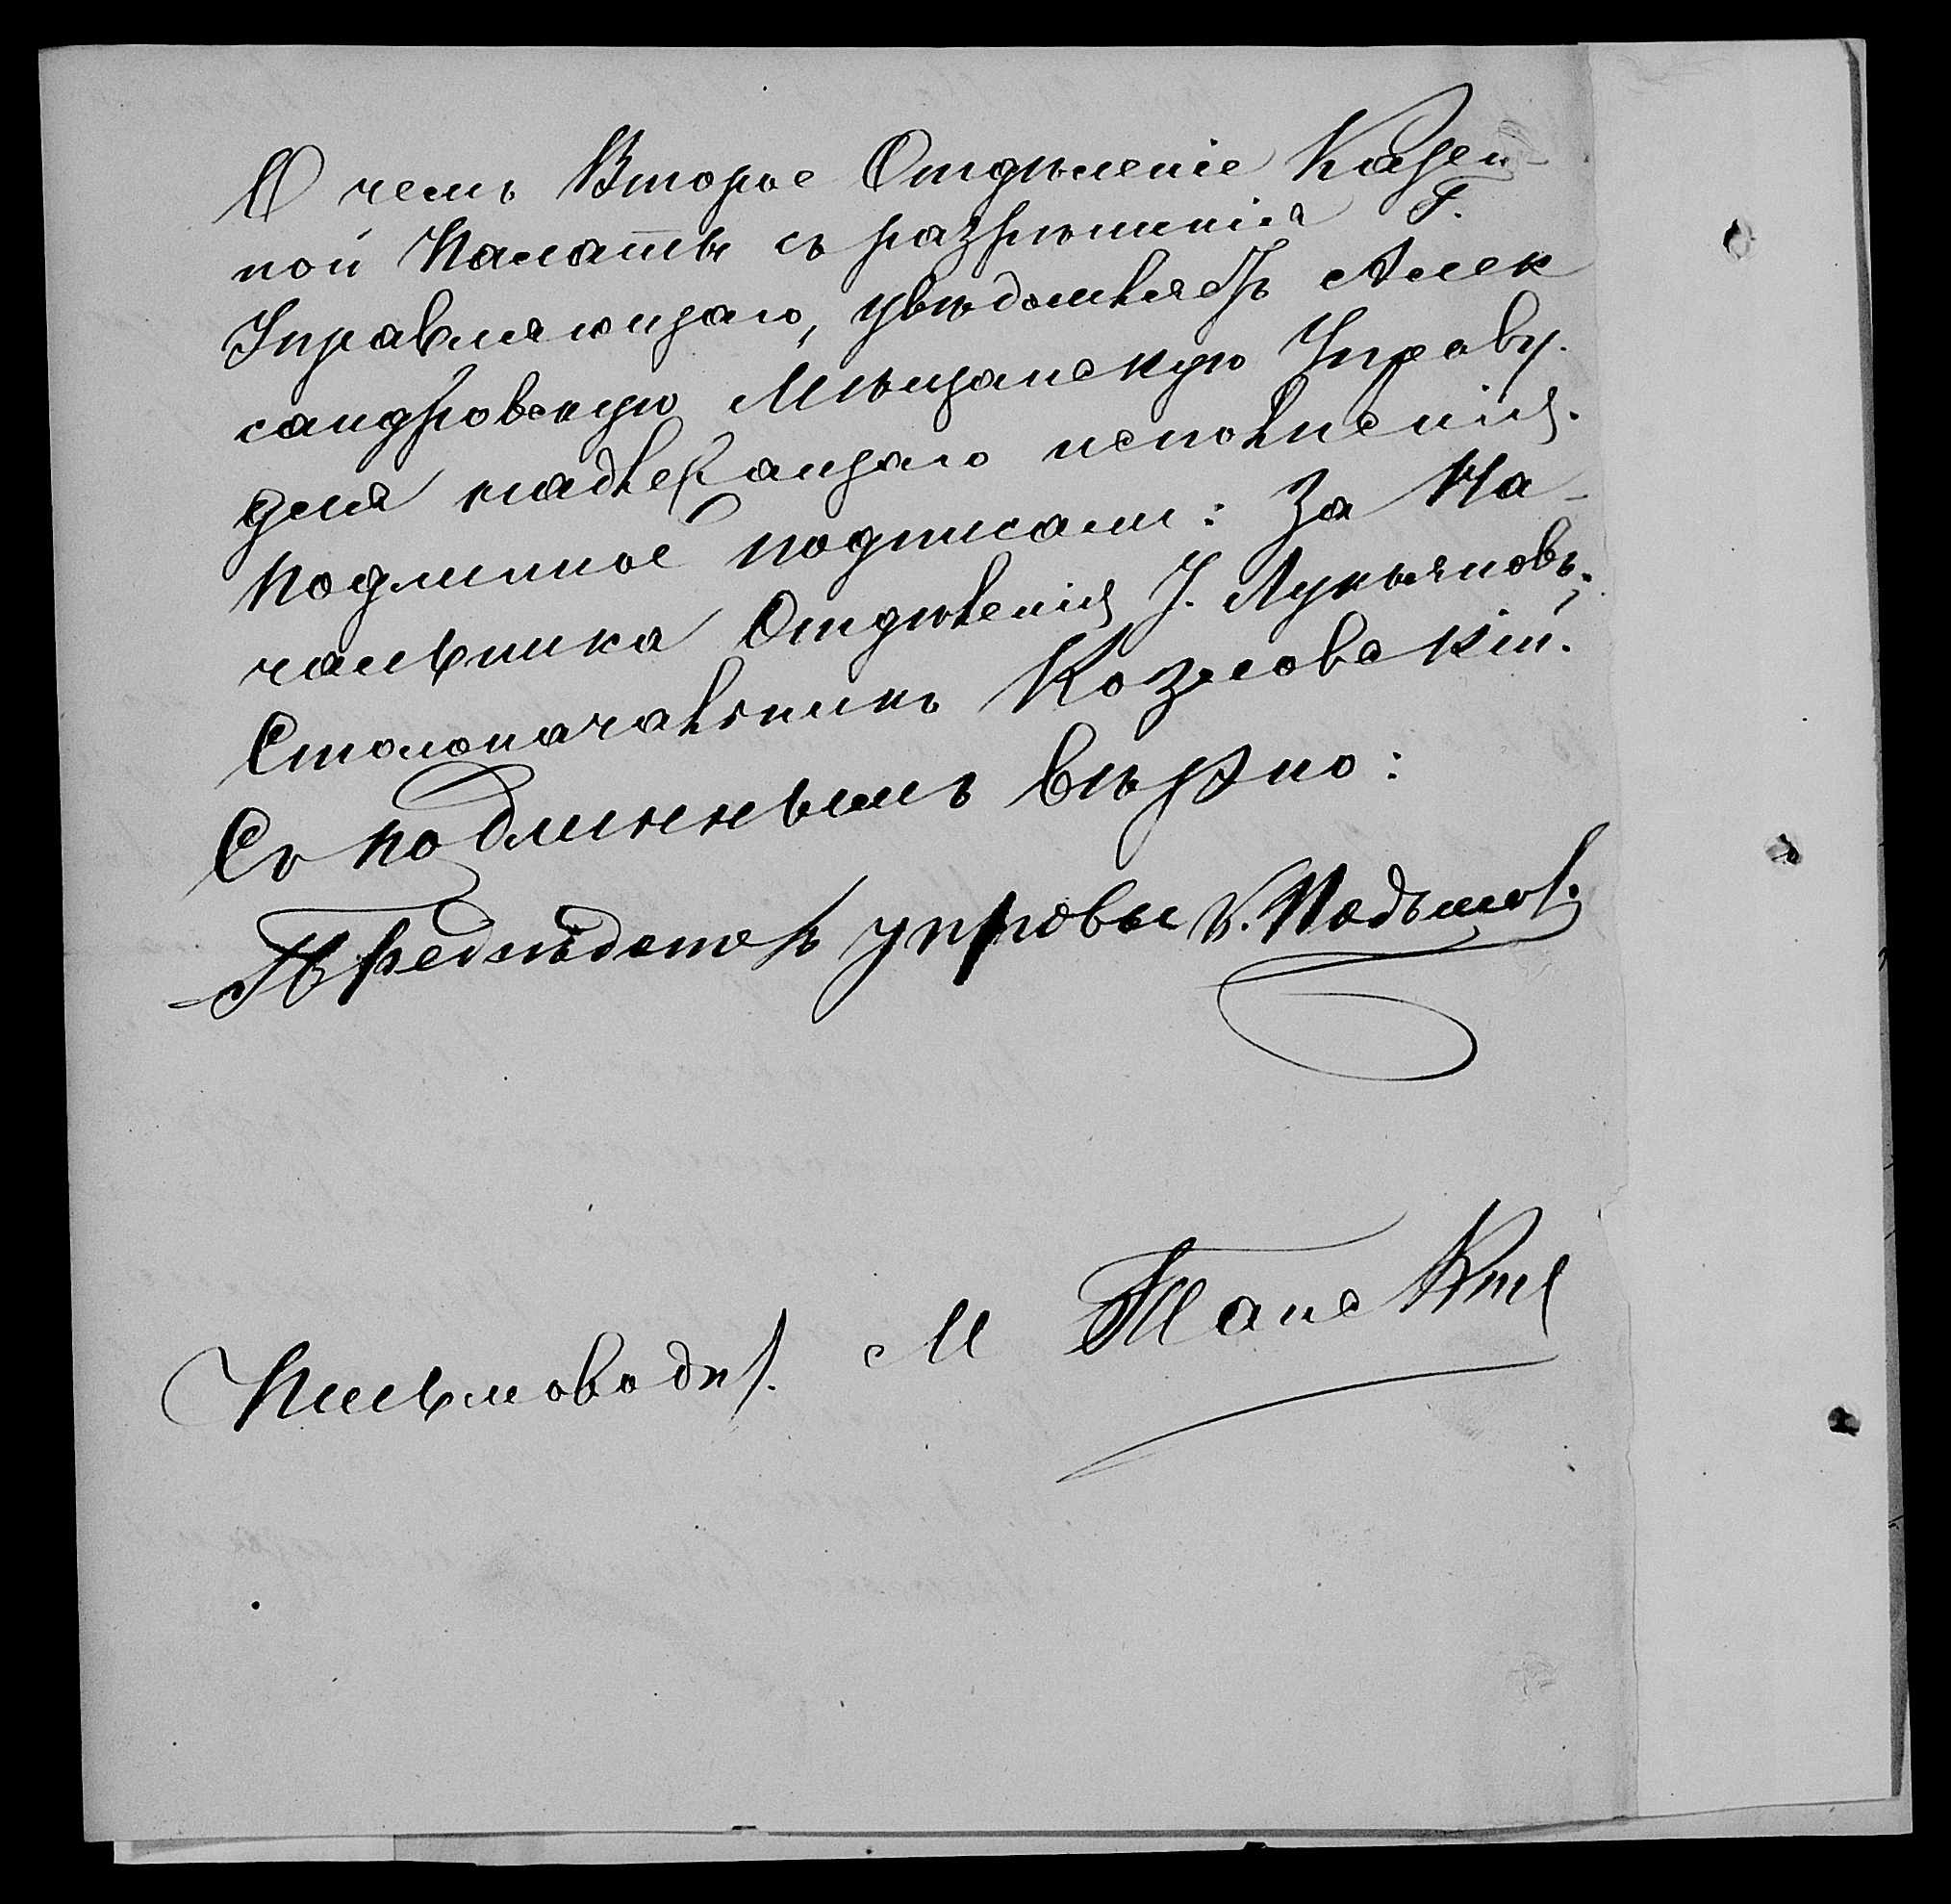 О чемъ Второе Отдѣленіе Казен-
ной Палаты съ разрѣшенія Г.
Управляющаго, увѣдомляетъ Алек
сандровскую Мѣщанскую Управу.
для надлежащаго исполненія.
Подлинное подписали: За На-
чальника Отдѣленія У. Лукьяновъ;
Столоначальникъ Козловскій.
Съ подлиннымъ вѣрно:
Предсѣдатель управы
Письмоводит. М